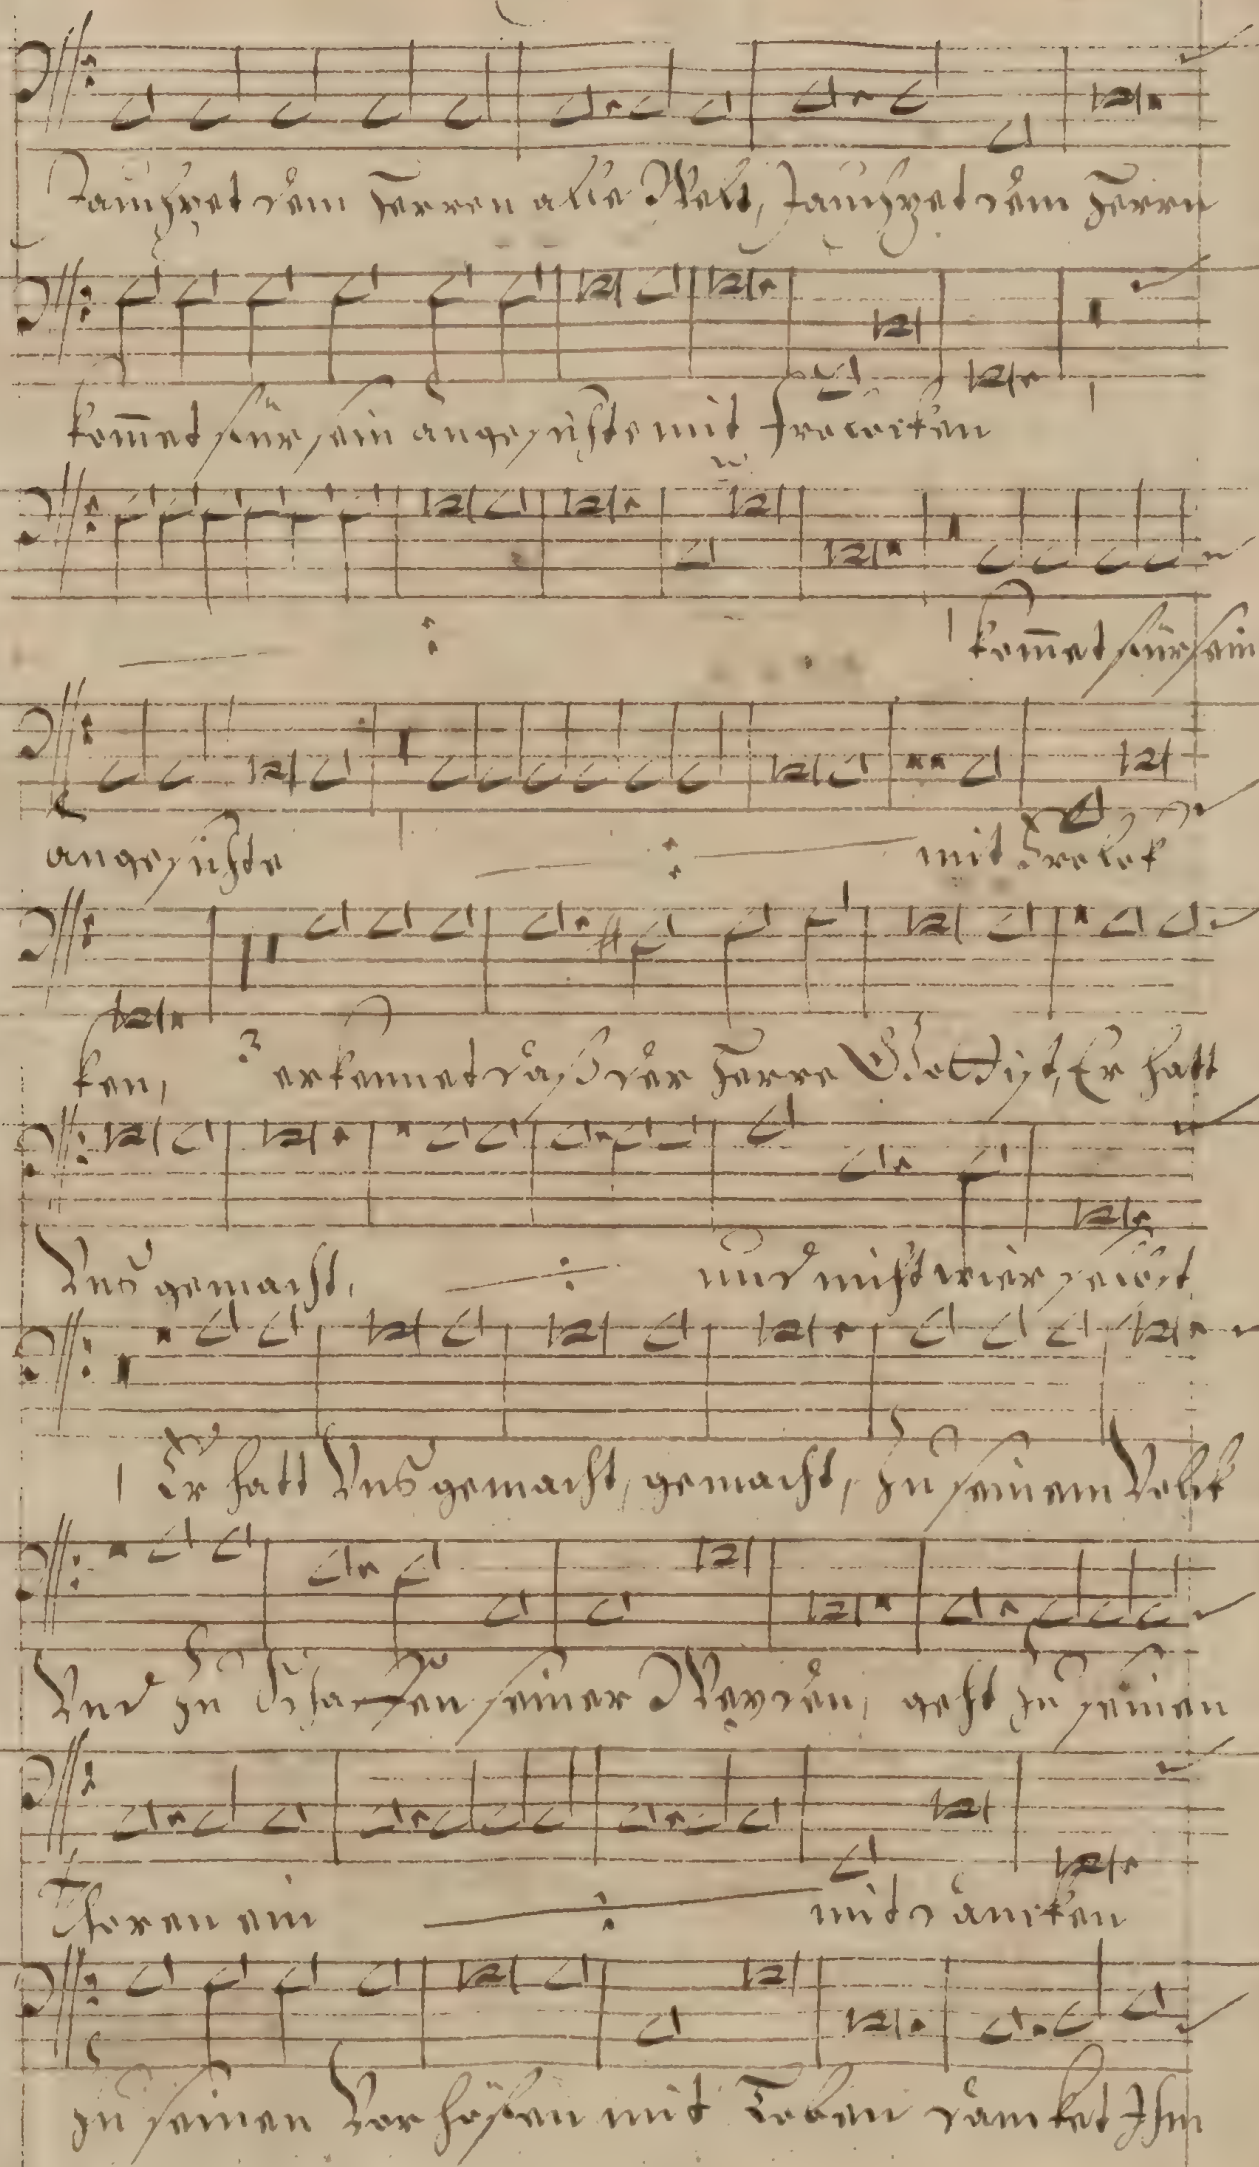 Jauchzet dem Herren alle Welt, Jauchzet dem Herrn
kom̄et für sein angesichte mit frolocken
kom̄et für sein
angesichte mit Frolok
ken, 3 erkennet daß der Herre Gott ist, Er hatt
Vns gemacht, und nicht wier selbst
Er hatt Vns gemacht, gemacht, zu seinem Volck
Vnd zu Schaffen seiner Weyden, geht zu seinen
Thoren ein mit dancken
zu seinen Vorhöfen mit Loben dancket Ihm